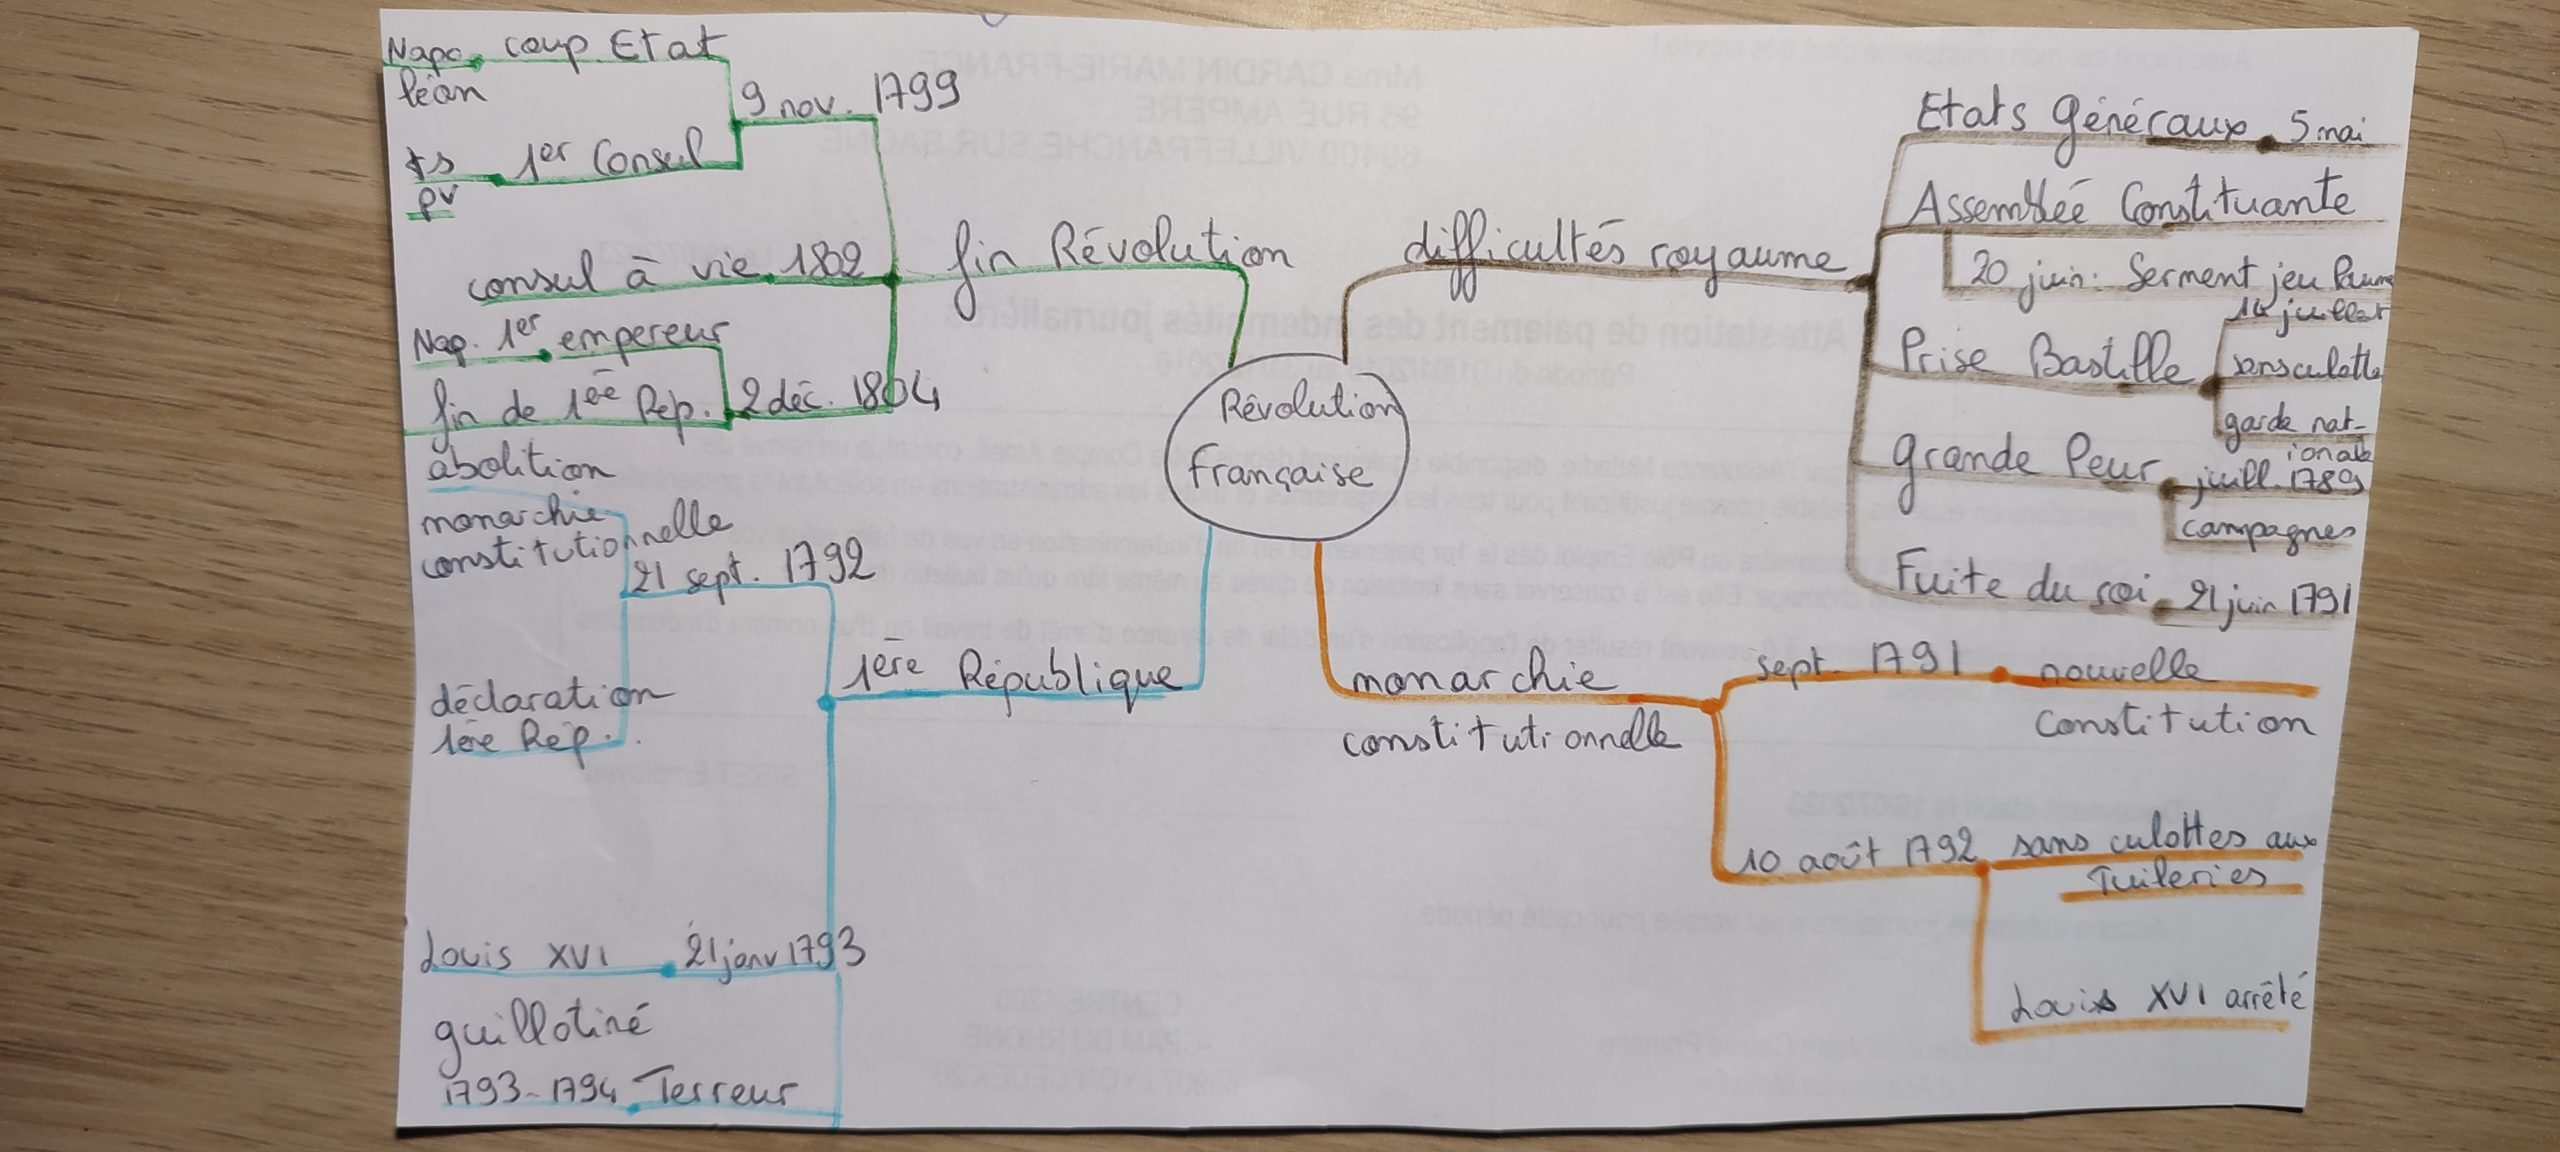 Révolution
Française
difficultés royaume
Etats Généraux 5 mai
Assemblée Constituante
20 juin. Serment jeu Paume
Prise Bastille
14 juillet
sansculotte
garde nat-
ionale
Grande Peur
juill. 1789
campagnes
Fuite du roi 21 juin 1791
monarchie
constitutionnelle
sept. 1791 nouvelle
Constitution
10 août 1792 sans culottes aux
Tuileries
Louis XVI arrêté
1ère République
21 sept. 1792
abolition
monarchie
constitutionnelle
déclaration
1ère Rép.
Louis XVI 21 janv 1793
guillotiné
1793-1794 Terreur
fin Révolution
9 nov. 1799
Napo- coup Etat
léon
ts 1er Consul
pv
consul à vie 1802
2 déc. 1804
Nap. 1er empereur
fin de 1ère Rép.